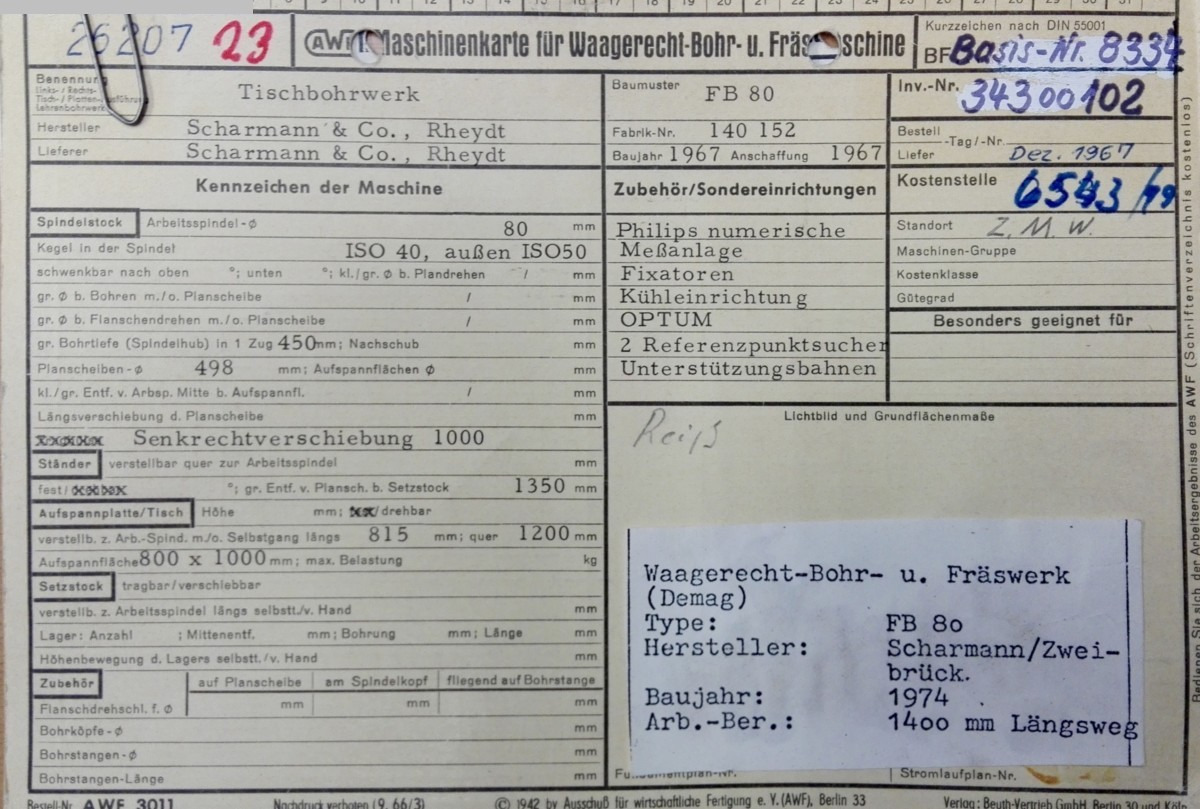 26207 23 AWF Maschinenkarte für Waagerecht-Bohr- u. Fräsmaschine
Kurzzeichen nach DIN 55001
BF Basis-Nr. 8334
Benennung
Links- / Rechts-
Tisch- / Platten-
Lehrenbohrwerk
Tischbohrwerk
Hersteller Scharmann & Co., Rheydt
Lieferer Scharmann & Co., Rheydt
Baumuster FB 80
Fabrik-Nr. 140 152
Baujahr 1967 Anschaffung 1967
Inv.-Nr. 34300102
Bestell
Liefer -Tag/-Nr. Dez. 1967
Kostenstelle 6543/99
Standort Z. M. W.
Maschinen-Gruppe
Kostenklasse
Gütegrad
Besonders geeignet für
Kennzeichen der Maschine
Spindelstock Arbeitsspindel-⌀ 80 mm
Kegel in der Spindel ISO 40, außen ISO50
schwenkbar nach oben °; unten °; kl./gr. ⌀ b. Plandrehen / mm
gr. ⌀ b. Bohren m./o. Planscheibe / mm
gr. ⌀ b. Flanschendrehen m./o. Planscheibe / mm
gr. Bohrtiefe (Spindelhub) in 1 Zug 450mm; Nachschub mm
Planscheiben-⌀ 498 mm; Aufspannflächen ⌀ mm
kl./gr. Entf. v. Arbsp. Mitte b. Aufspannfl. / mm
Längsverschiebung d. Planscheibe mm
xxxxx Senkrechtverschiebung 1000
Ständer verstellbar quer zur Arbeitsspindel mm
fest/xxxx °; gr. Entf. v. Plansch. b. Setzstock 1350 mm
Aufspannplatte/Tisch Höhe mm; xx/drehbar
verstellb. z. Arb.-Spind. m./o. Selbstgang längs 815 mm; quer 1200 mm
Aufspannfläche 800 x 1000 mm; max. Belastung kg
Setzstock tragbar/verschiebbar
verstellb. z. Arbeitsspindel längs selbstt./v. Hand mm
Lager: Anzahl ; Mittenentf. mm; Bohrung mm; Länge mm
Höhenbewegung d. Lagers selbstt./v. Hand mm
Zubehör auf Planscheibe am Spindelkopf fliegend auf Bohrstange
Flanschdrehschl. f. ⌀ mm mm mm
Bohrköpfe-⌀ mm
Bohrstangen-⌀ mm
Bohrstangen-Länge mm
Zubehör/Sondereinrichtungen
Philips numerische
Meßanlage
Fixatoren
Kühleinrichtung
OPTUM
2 Referenzpunktsucher
Unterstützungsbahnen
Lichtbild und Grundflächenmaße
Reiß
Waagerecht-Bohr- u. Fräswerk
(Demag)
Type: FB 80
Hersteller: Scharmann/Zwei-
brück.
Baujahr: 1974
Arb.-Ber.: 1400 mm Längsweg
Stromlaufplan-Nr.
Bestell-Nr. AWF 3011 Nachdruck verboten (9. 66/3) © 1942 by Ausschuß für wirtschaftliche Fertigung e. V. (AWF), Berlin 33 Verlag: Beuth-Vertrieb GmbH, Berlin 30 und Köln
Bedienen Sie sich der Arbeitsergebnisse des AWF (Schriftenverzeichnis kostenlos)